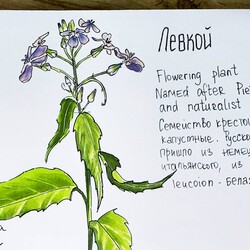 Левкой
Flowering plant
Named after Pie
and naturalist
Семейство кресто
капустные. Русско
пришло из немец
итальянского, из
leucoion - белая